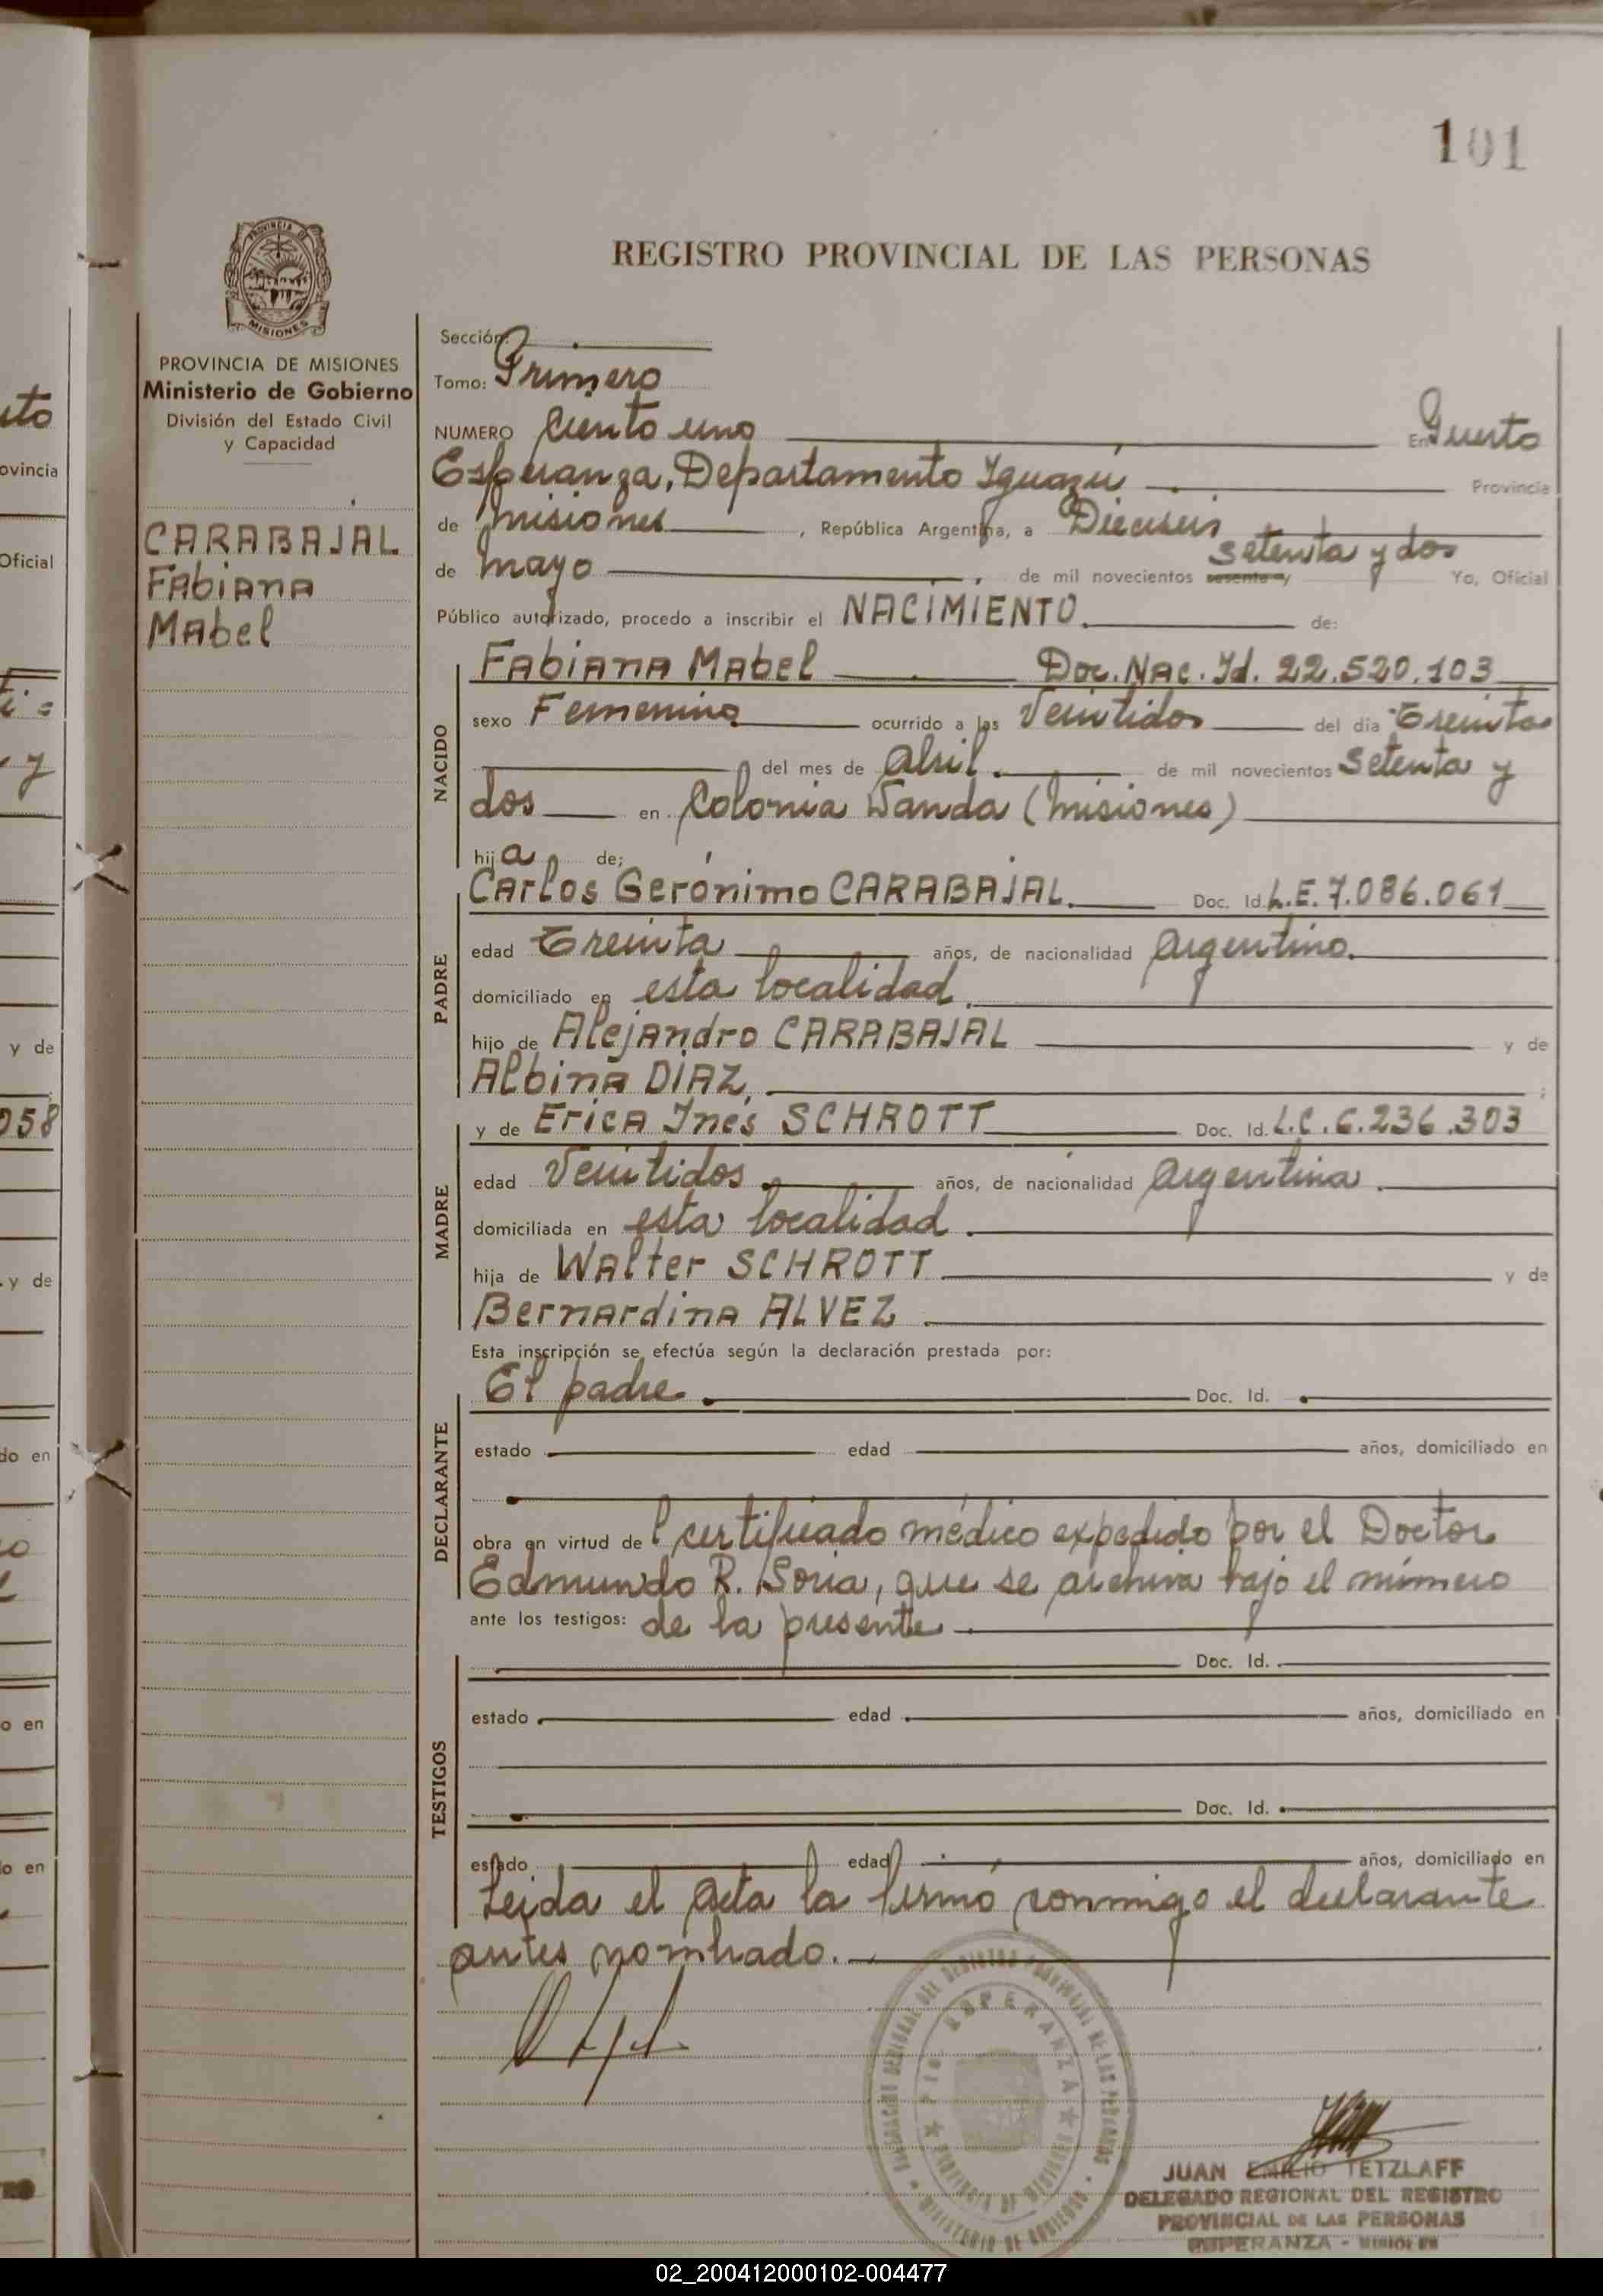 101
REGISTRO PROVINCIAL DE LAS PERSONAS
PROVINCIA DE
MISIONES
PROVINCIA DE MISIONES
Ministerio de Gobierno
División del Estado Civil
y Capacidad
CARABAJAL
Fabiana
Mabel
Sección:
Tomo: Primero
NUMERO Ciento uno En Puerto
Esperanza, Departamento Iguazú Provincia
de Misiones, República Argentina, a Dieciseis
de mayo de mil novecientos sesenta y setenta y dos Yo, Oficial
Público autorizado, procedo a inscribir el NACIMIENTO. de:
NACIDO
Fabiana Mabel Doc. Nac. Id. 22.520.103
sexo Femenino ocurrido a las Veintidos del día Treinta
del mes de Abril. de mil novecientos Setenta y
dos en Colonia Wanda (Misiones)
hija de:
PADRE
Carlos Gerónimo CARABAJAL. Doc. Id. L.E. 7.086.061
edad Treinta años, de nacionalidad Argentino.
domiciliado en esta localidad.
hijo de Alejandro CARABAJAL y de
Albina DIAZ. ;
MADRE
y de Erica Inés SCHROTT Doc. Id. L.C. 6.236.303
edad Veintidos años, de nacionalidad Argentina.
domiciliada en esta localidad.
hija de Walter SCHROTT y de
Bernardina ALVEZ.
Esta inscripción se efectúa según la declaración prestada por:
DECLARANTE
El padre. Doc. Id.
estado edad años, domiciliado en
obra en virtud del certificado médico expedido por el Doctor
Edmundo R. Soria, que se archiva bajo el número
ante los testigos: de la presente
TESTIGOS
Doc. Id.
estado edad años, domiciliado en
Doc. Id.
estado edad años, domiciliado en
Leida el Acta la firmó conmigo el declarante
antes nombrado.
DELEGACION REGIONAL DEL REGISTRO PROVINCIAL DE LAS PERSONAS
PTO. ESPERANZA
PROVINCIA DE MISIONES
MINISTERIO DE GOBIERNO
JUAN EMILIO TETZLAFF
DELEGADO REGIONAL DEL REGISTRO
PROVINCIAL DE LAS PERSONAS
ESPERANZA - MISIONES
ito
ovincia
Oficial
y
y de
058
y de
do en
o en
o en
02_200412000102-004477